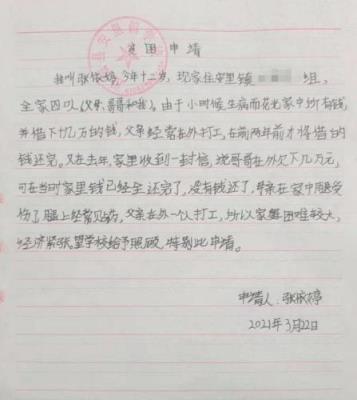 贫困申请
我叫张依婷,今年十二岁,现家住安里镇 组,
全家四口(父亲、哥哥和我)。由于小时候生病而花光家中所有钱,
并借下十几万的钱,父亲经常在外打工,在前两年前才将借的
钱还完。又在去年,家里收到一封信,说哥哥在外欠下几万元,
可在当时家里钱已经全还完了,没有钱还了,母亲在家中腿受
伤了,父亲在外一个人打工,所以家集困难较大,
经济紧张。望学校给予照顾,特别此申请。
申请人:张依婷
2021年3月22日